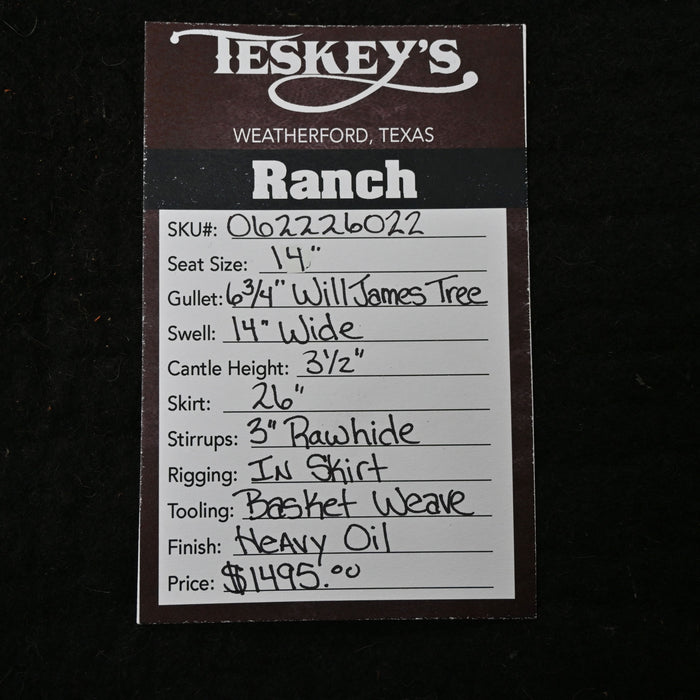 TESKEY'S
WEATHERFORD, TEXAS
Ranch
SKU#: 0622226022
Seat Size: 14"
Gullet: 6 3/4" Will James Tree
Swell: 14" Wide
Cantle Height: 3 1/2"
Skirt: 26"
Stirrups: 3" Rawhide
Rigging: In Skirt
Tooling: Basket Weave
Finish: Heavy Oil
Price: $1495.00